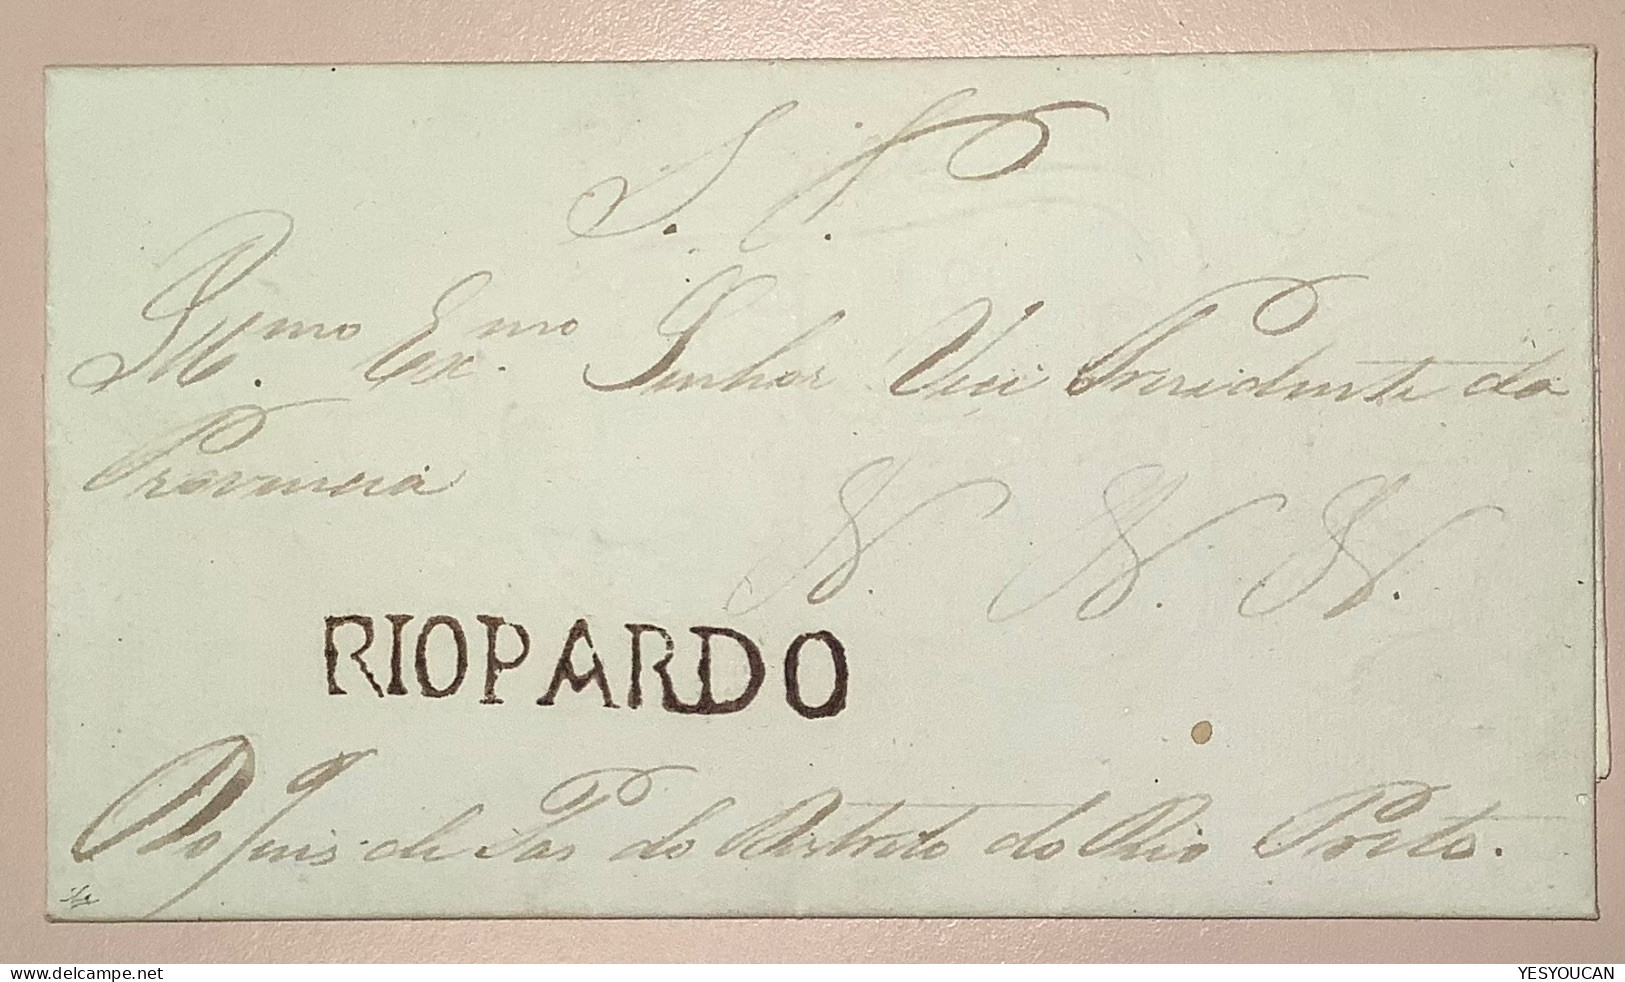 S. P.
Illmo. Exmo. Senhor Vice Presidente da
Provincia
N. N. N.
RIOPARDO
Do Juis de Pas do Distrito do Rio Preto.
delcampe.net
YESYOUCAN